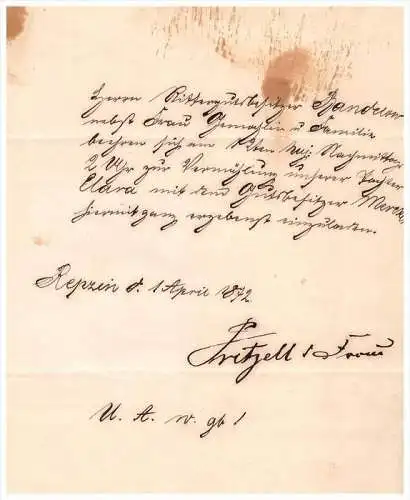 Herrn Rittergutsbesitzer
nebst Frau Gemahlin u Familie
beehren sich am Nachmittag
2 Uhr zur Vermählung unserer Tochter
Clara mit dem Gutsbesitzer
hiermit ganz ergebenst einzuladen.
Repzin d. 1 April 1872
Fritzell u Frau
U. A. w. gb!